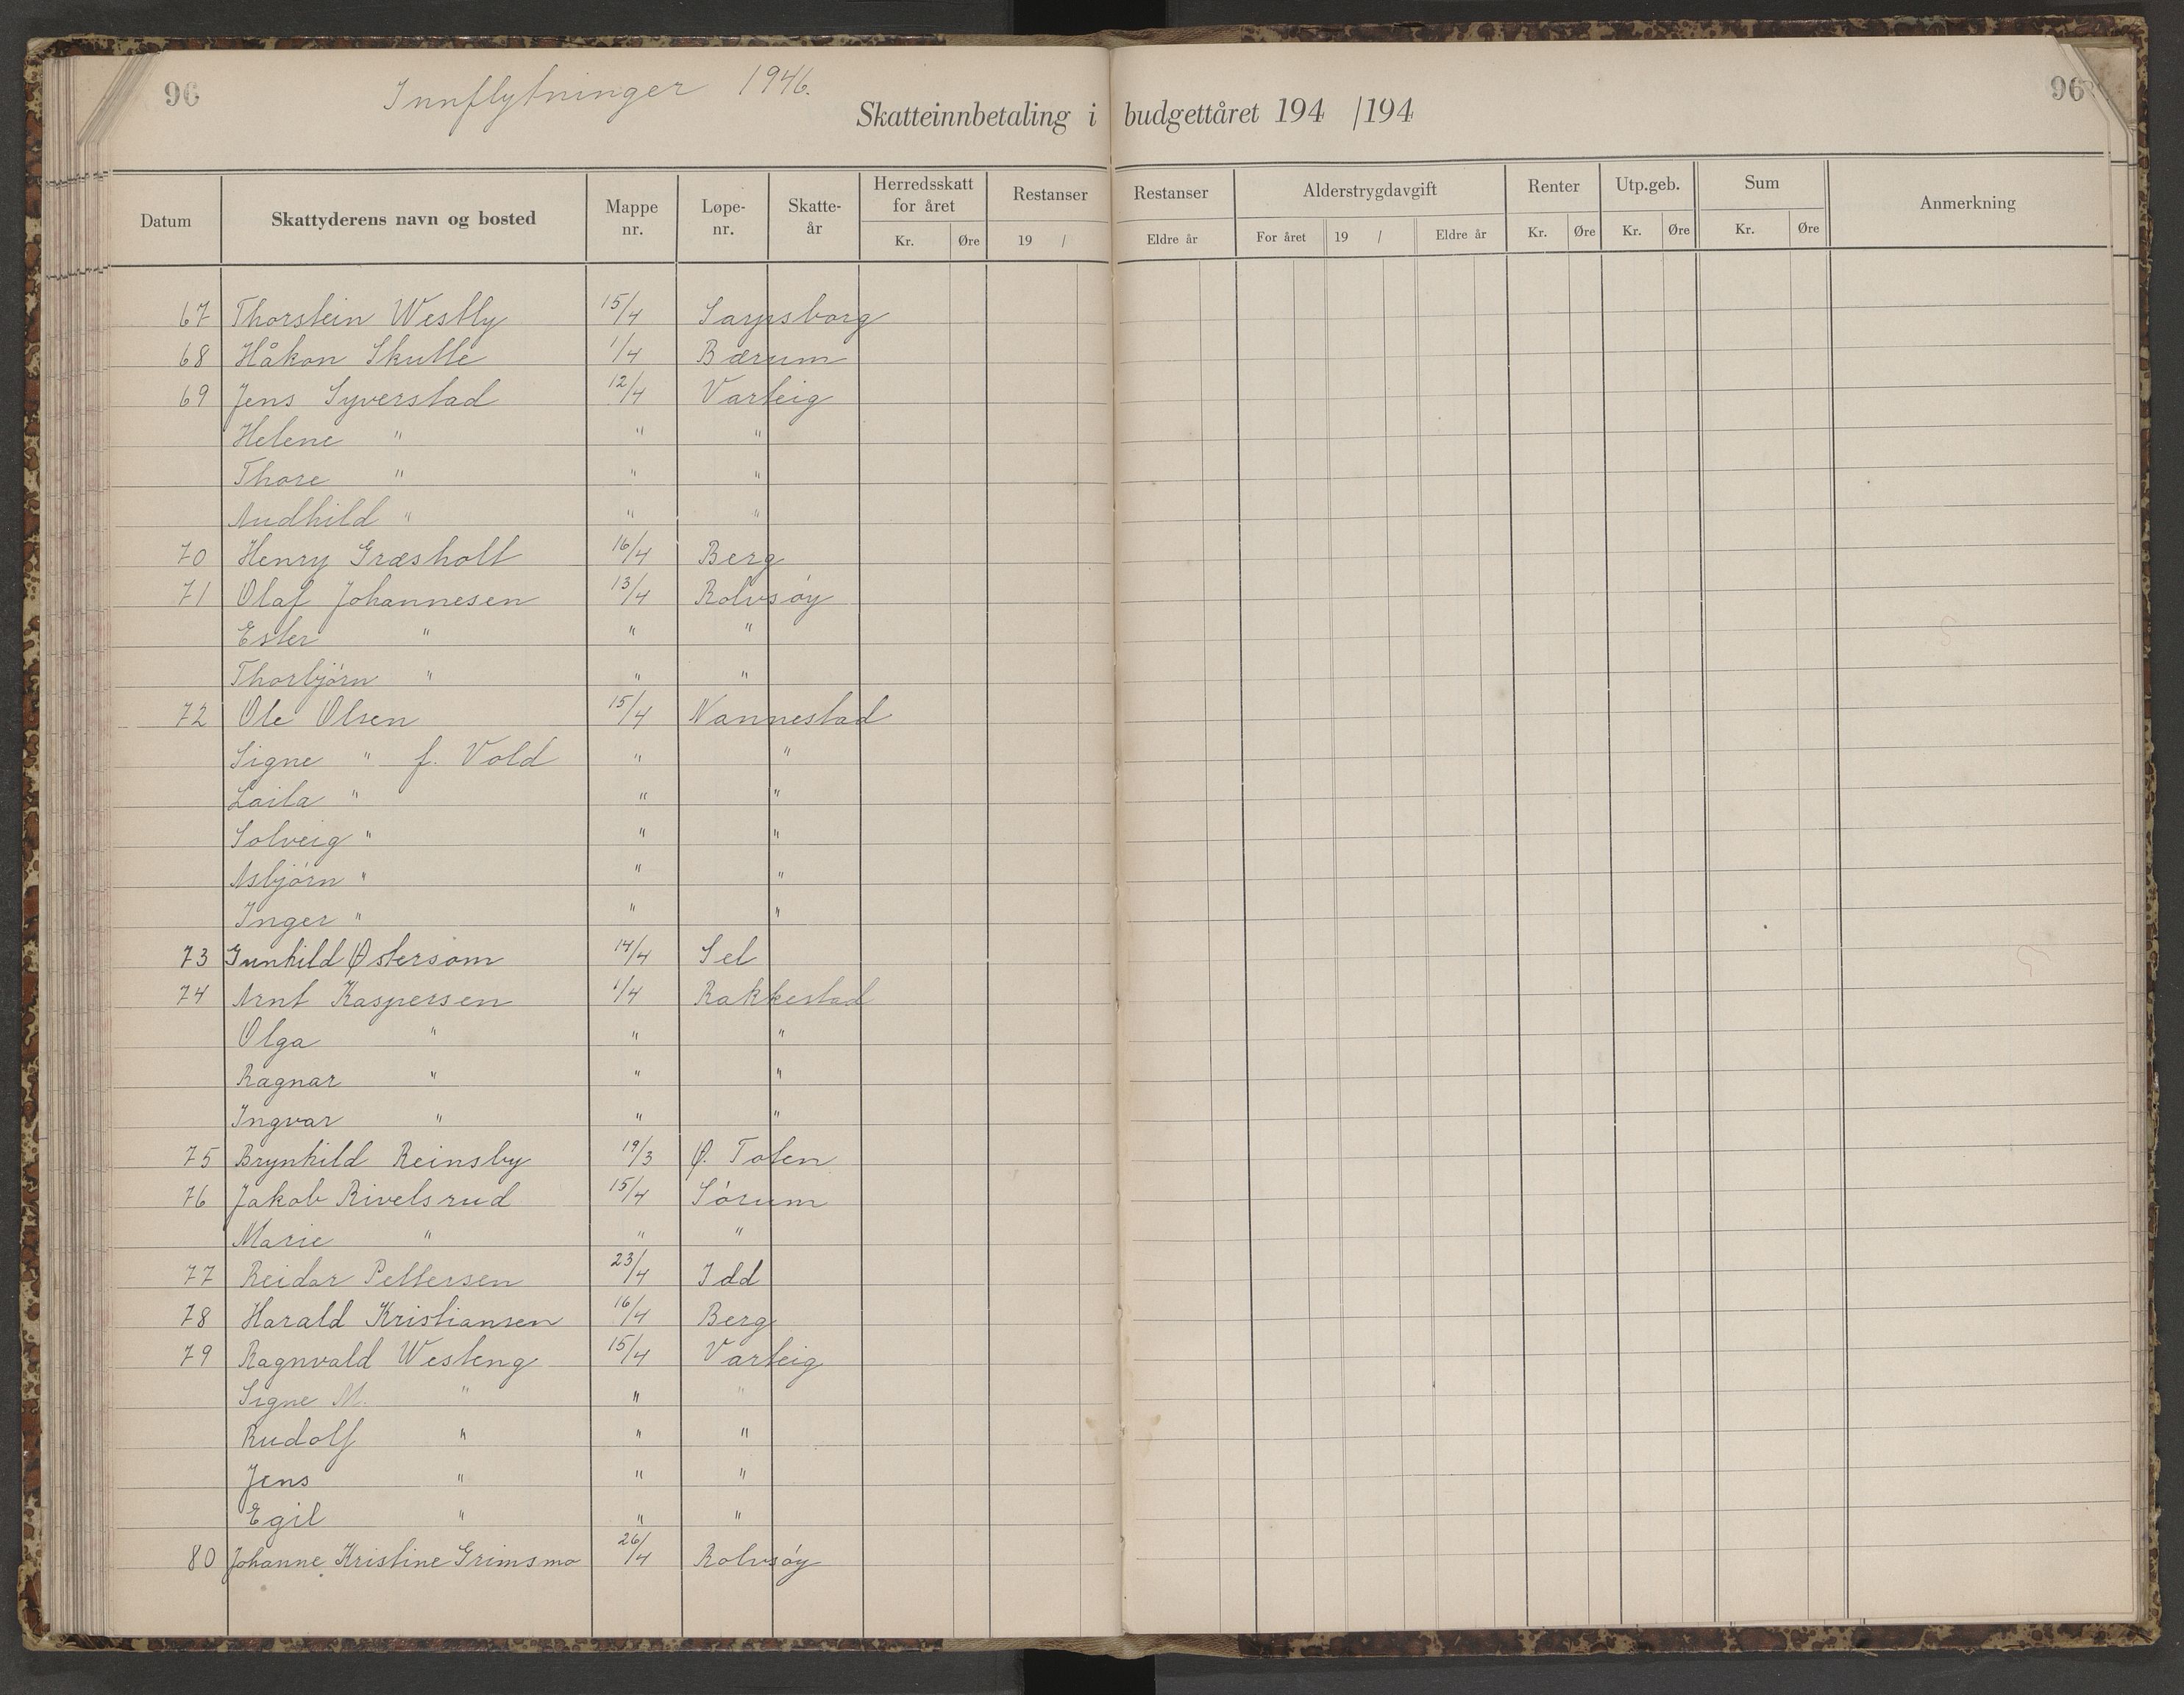 96
Innflytninger 1946.
96
Skatteinnbetaling i budgettåret 194 /194
Datum Skattyderens navn og bosted Mappe nr. Løpe-nr. Skatte-år Herredsskatt for året Kr. Øre Restanser 19 / Restanser Eldre år Alderstrygdavgift For året 19 / Eldre år Renter Kr. Øre Utp.geb. Kr. Øre Sum Kr. Øre Anmerkning
67 Thorstein Westby 15/4 Sarpsborg
68 Håkon Skutle 1/4 Bærum
69 Jens Syverstad 12/4 Varteig
Helene " " "
Thore " " "
Audhild " " "
70 Henry Græsholt 16/4 Berg
71 Olaf Johannesen 13/4 Rolvsøy
Ester " " "
Thorbjørn " " "
72 Ole Olsen 15/4 Nannestad
Signe " f. Vold " "
Laila " " "
Solveig " " "
Asbjørn " " "
Inger " " "
73 Gunhild Østersom 14/4 Sel
74 Arnt Kaspersen 1/4 Rakkestad
Olga " " "
Ragnar " " "
Ingvar " " "
75 Brynhild Reinsby 19/3 Ø. Toten
76 Jakob Rivelsrud 15/4 Sørum
Marie " " "
77 Reidar Pettersen 23/4 Idd
78 Harald Kristiansen 16/4 Berg
79 Ragnvald Westeng 15/4 Varteig
Signe M. " " "
Rudolf " " "
Jens " " "
Egil " " "
80 Johanne Kristine Grimsmo 26/4 Rolvsøy